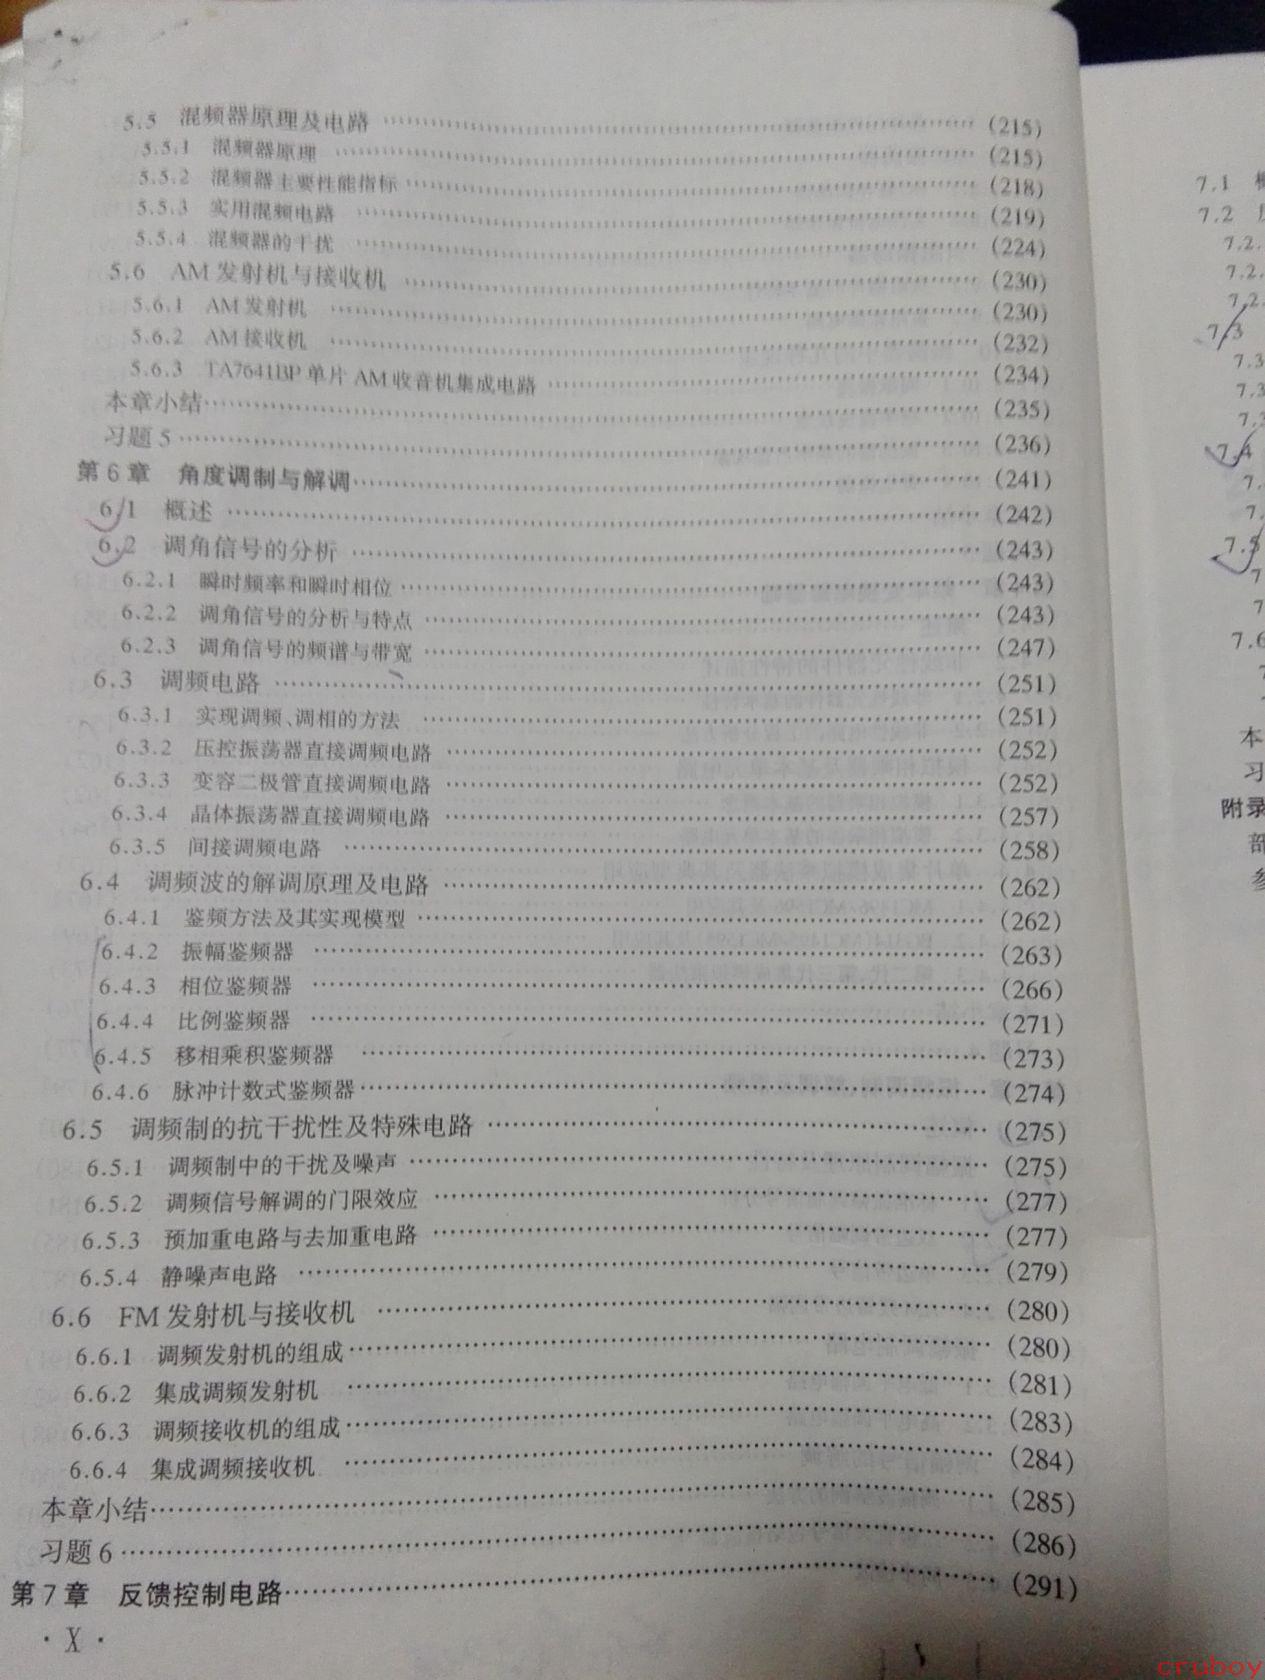 5.5 混频器原理及电路 ………………………………………… (215)
5.5.1 混频器原理 ………………………………………… (215)
5.5.2 混频器主要性能指标 ………………………………………… (218)
5.5.3 实用混频电路 ………………………………………… (219)
5.5.4 混频器的干扰 ………………………………………… (224)
5.6 AM发射机与接收机 ………………………………………… (230)
5.6.1 AM发射机 ………………………………………… (230)
5.6.2 AM接收机 ………………………………………… (232)
5.6.3 TA7641BP单片AM收音机集成电路 ………………………………………… (234)
本章小结………………………………………… (235)
习题5 ………………………………………… (236)
第6章 角度调制与解调………………………………………… (241)
6.1 概述 ………………………………………… (242)
6.2 调角信号的分析 ………………………………………… (243)
6.2.1 瞬时频率和瞬时相位 ………………………………………… (243)
6.2.2 调角信号的分析与特点 ………………………………………… (243)
6.2.3 调角信号的频谱与带宽 ………………………………………… (247)
6.3 调频电路 ………………………………………… (251)
6.3.1 实现调频、调相的方法 ………………………………………… (251)
6.3.2 压控振荡器直接调频电路 ………………………………………… (252)
6.3.3 变容二极管直接调频电路 ………………………………………… (252)
6.3.4 晶体振荡器直接调频电路 ………………………………………… (257)
6.3.5 间接调频电路 ………………………………………… (258)
6.4 调频波的解调原理及电路 ………………………………………… (262)
6.4.1 鉴频方法及其实现模型 ………………………………………… (262)
6.4.2 振幅鉴频器 ………………………………………… (263)
6.4.3 相位鉴频器 ………………………………………… (266)
6.4.4 比例鉴频器 ………………………………………… (271)
6.4.5 移相乘积鉴频器 ………………………………………… (273)
6.4.6 脉冲计数式鉴频器 ………………………………………… (274)
6.5 调频制的抗干扰性及特殊电路 ………………………………………… (275)
6.5.1 调频制中的干扰及噪声 ………………………………………… (275)
6.5.2 调频信号解调的门限效应 ………………………………………… (277)
6.5.3 预加重电路与去加重电路 ………………………………………… (277)
6.5.4 静噪声电路 ………………………………………… (279)
6.6 FM发射机与接收机 ………………………………………… (280)
6.6.1 调频发射机的组成 ………………………………………… (280)
6.6.2 集成调频发射机 ………………………………………… (281)
6.6.3 调频接收机的组成 ………………………………………… (283)
6.6.4 集成调频接收机 ………………………………………… (284)
本章小结………………………………………… (285)
习题6 ………………………………………… (286)
第7章 反馈控制电路………………………………………… (291)
· X ·
7.1
7.2
7.2.
7.2.
7.2.
7.3
7.3
7.3
7.3
7.4
7.
7.
7.5
7
7
7.6
7
本
习
附录
部
cruboy